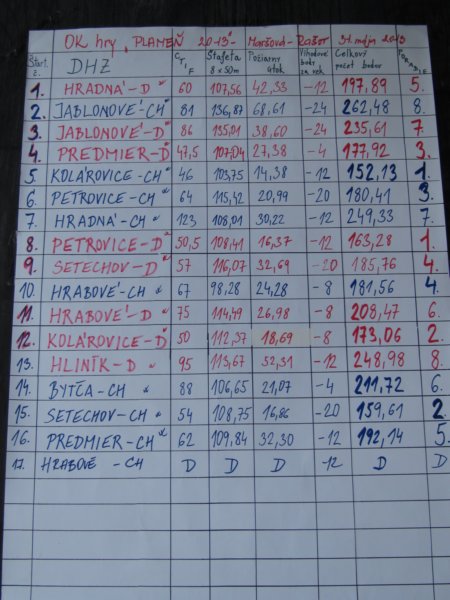 OK hry „PLAMEŇ 2013" Maršová-Rašov 31. mája 2013
Štart. č. DHZ CTIF Štafeta 8 x 50m Požiarny útok Výhodové body za vek Celkový počet bodov PORADIE
1. HRADNÁ-D 60 107,56 42,33 -12 197,89 5.
2. JABLONOVÉ-CH 81 136,87 68,61 -24 262,48 8.
3. JABLONOVÉ-D 86 135,01 38,60 -24 235,61 7
4. PREDMIER-D 47,5 107,04 27,38 -4 177,92 3.
5. KOLÁROVICE-CH 46 103,75 14,38 -12 152,13 1.
6. PETROVICE-CH 64 115,42 20,99 -20 180,41 3.
7. HRADNÁ-CH 123 108,01 30,22 -12 249,33 7.
8. PETROVICE-D 50,5 108,41 16,37 -12 163,28 1.
9. SETECHOV-D 57 116,07 32,69 -20 185,76 4.
10. HRABOVÉ-CH 67 98,28 24,28 -8 181,56 4.
11. HRABOVÉ-D 75 114,49 26,98 -8 208,47 6.
12. KOLÁROVICE-D 50 112,37 18,69 -8 173,06 2.
13. HLINÍK-D 95 113,67 52,31 -12 248,98 8.
14. BYTČA-CH 88 106,65 21,07 -4 211,72 6.
15. SETECHOV-CH 54 108,75 16,86 -20 159,61 2.
16. PREDMIER-CH 62 109,84 32,30 -12 192,14 5.
17. HRABOVÉ-CH D D D -12 D D